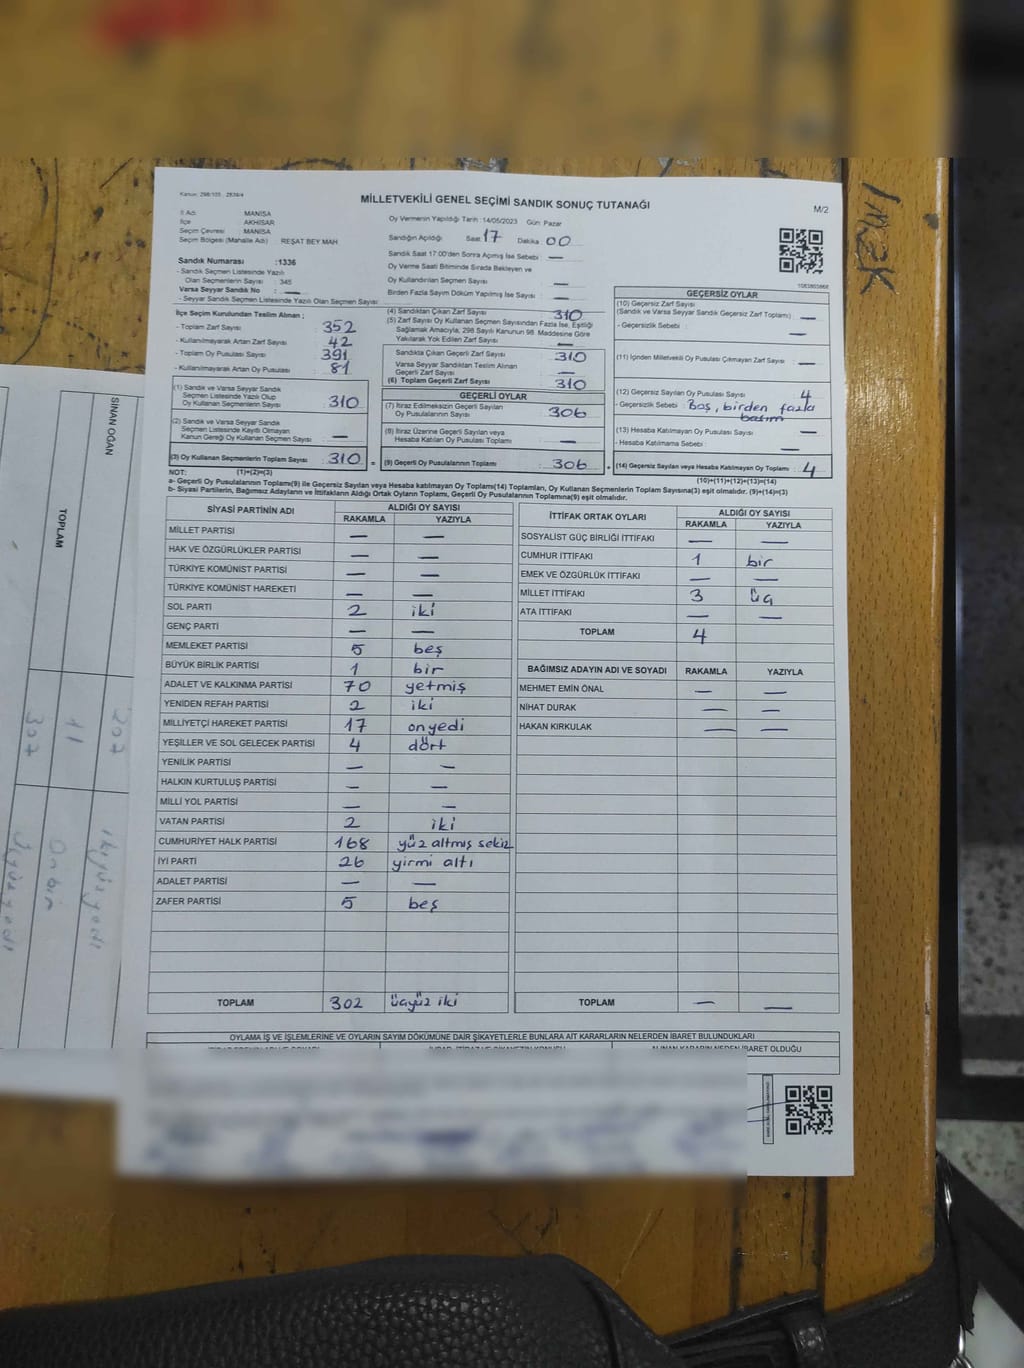 Kanun: 298/105 , 2839/4
MİLLETVEKİLİ GENEL SEÇİMİ SANDIK SONUÇ TUTANAĞI
M/2
İl Adı : MANİSA
İlçe AKHİSAR
Seçim Çevresi : MANİSA
Seçim Bölgesi (Mahalle Adı) : REŞAT BEY MAH
Oy Vermenin Yapıldığı Tarih : 14/05/2023 Gün: Pazar
Sandığın Açıldığı Saat : 17 Dakika : 00
Sandık Saat 17:00'den Sonra Açımış İse Sebebi : —
Oy Verme Saati Bitiminde Sırada Bekleyen ve
Oy Kullandırılan Seçmen Sayısı : —
Birden Fazla Sayım Döküm Yapılmış İse Sayısı : —
Sandık Numarası :1336
- Sandık Seçmen Listesinde Yazılı
Olan Seçmenlerin Sayısı : 345
Varsa Seyyar Sandık No : —
- Seyyar Sandık Seçmen Listesinde Yazılı Olan Seçmen Sayısı
İlçe Seçim Kurulundan Teslim Alınan ;
- Toplam Zarf Sayısı : 352
- Kullanılmayarak Artan Zarf Sayısı : 42
- Toplam Oy Pusulası Sayısı : 391
- Kullanılmayarak Artan Oy Pusulası : 81
(1) Sandık ve Varsa Seyyar Sandık
Seçmen Listesinde Yazılı Olup
Oy Kullanan Seçmenlerin Sayısı : 310
(2) Sandık ve Varsa Seyyar Sandık
Seçmen Listesinde Kayıtlı Olmayan
Kanun Gereği Oy Kullanan Seçmen Sayısı : —
(3) Oy Kullanan Seçmenlerin Toplam Sayısı : 310 =
(4) Sandıktan Çıkan Zarf Sayısı : 310
(5) Zarf Sayısı Oy Kullanan Seçmen Sayısından Fazla İse, Eşitliği
Sağlamak Amacıyla, 298 Sayılı Kanunun 98. Maddesine Göre
Yakılarak Yok Edilen Zarf Sayısı : —
Sandıkta Çıkan Geçerli Zarf Sayısı : 310
Varsa Seyyar Sandıktan Teslim Alınan
Geçerli Zarf Sayısı : —
(6) Toplam Geçerli Zarf Sayısı : 310
GEÇERLİ OYLAR
(7) İtiraz Edilmeksizin Geçerli Sayılan
Oy Pusulalarının Sayısı : 306
(8) İtiraz Üzerine Geçerli Sayılan veya
Hesaba Katılan Oy Pusulası Toplamı : —
(9) Geçerli Oy Pusulalarının Toplamı : 306 +
1083803868
GEÇERSİZ OYLAR
(10) Geçersiz Zarf Sayısı
(Sandık ve Varsa Seyyar Sandık Geçersiz Zarf Toplamı) : —
- Geçersizlik Sebebi : —
(11) İçinden Milletvekili Oy Pusulası Çıkmayan Zarf Sayısı : —
(12) Geçersiz Sayılan Oy Pusulası Sayısı : 4
- Geçersizlik Sebebi : Boş, birden fazla
basım
(13) Hesaba Katılmayan Oy Pusulası Sayısı : —
- Hesaba Katılmama Sebebi : —
(14) Geçersiz Sayılan veya Hesaba Katılmayan Oy Toplamı : 4
NOT: (1)+(2)=(3)
(10)+(11)+(12)+(13)=(14)
a- Geçerli Oy Pusulalarının Toplamı(9) ile Geçersiz Sayılan veya Hesaba katılmayan Oy Toplamı(14) Toplamları, Oy Kullanan Seçmenlerin Toplam Sayısına(3) eşit olmalıdır. (9)+(14)=(3)
b- Siyasi Partilerin, Bağımsız Adayların ve İttifakların Aldığı Ortak Oyların Toplamı, Geçerli Oy Pusulalarının Toplamına(9) eşit olmalıdır.
SİYASİ PARTİNİN ADI ALDIĞI OY SAYISI
RAKAMLA YAZIYLA
MİLLET PARTİSİ — —
HAK VE ÖZGÜRLÜKLER PARTİSİ — —
TÜRKİYE KOMÜNİST PARTİSİ — —
TÜRKİYE KOMÜNİST HAREKETİ — —
SOL PARTİ 2 iki
GENÇ PARTİ — —
MEMLEKET PARTİSİ 5 beş
BÜYÜK BİRLİK PARTİSİ 1 bir
ADALET VE KALKINMA PARTİSİ 70 yetmiş
YENİDEN REFAH PARTİSİ 2 iki
MİLLİYETÇİ HAREKET PARTİSİ 17 onyedi
YEŞİLLER VE SOL GELECEK PARTİSİ 4 dört
YENİLİK PARTİSİ — —
HALKIN KURTULUŞ PARTİSİ — —
MİLLİ YOL PARTİSİ — —
VATAN PARTİSİ 2 iki
CUMHURİYET HALK PARTİSİ 168 yüz altmış sekiz
İYİ PARTİ 26 yirmi altı
ADALET PARTİSİ — —
ZAFER PARTİSİ 5 beş
TOPLAM 302 üçyüz iki
İTTİFAK ORTAK OYLARI ALDIĞI OY SAYISI
RAKAMLA YAZIYLA
SOSYALİST GÜÇ BİRLİĞİ İTTİFAKI — —
CUMHUR İTTİFAKI 1 bir
EMEK VE ÖZGÜRLÜK İTTİFAKI — —
MİLLET İTTİFAKI 3 üç
ATA İTTİFAKI — —
TOPLAM 4
BAĞIMSIZ ADAYIN ADI VE SOYADI RAKAMLA YAZIYLA
MEHMET EMİN ÖNAL — —
NİHAT DURAK — —
HAKAN KIRKULAK — —
TOPLAM — —
OYLAMA İŞ VE İŞLEMLERİNE VE OYLARIN SAYIM DÖKÜMÜNE DAİR ŞİKAYETLERLE BUNLARA AİT KARARLARIN NELERDEN İBARET BULUNDUKLARI
ALINAN KARARIN NEDEN İBARET OLDUĞU
SİNAN OĞAN
TOPLAM
207 ikiyüzyedi
11 Onbir
307 Üçyüzyedi